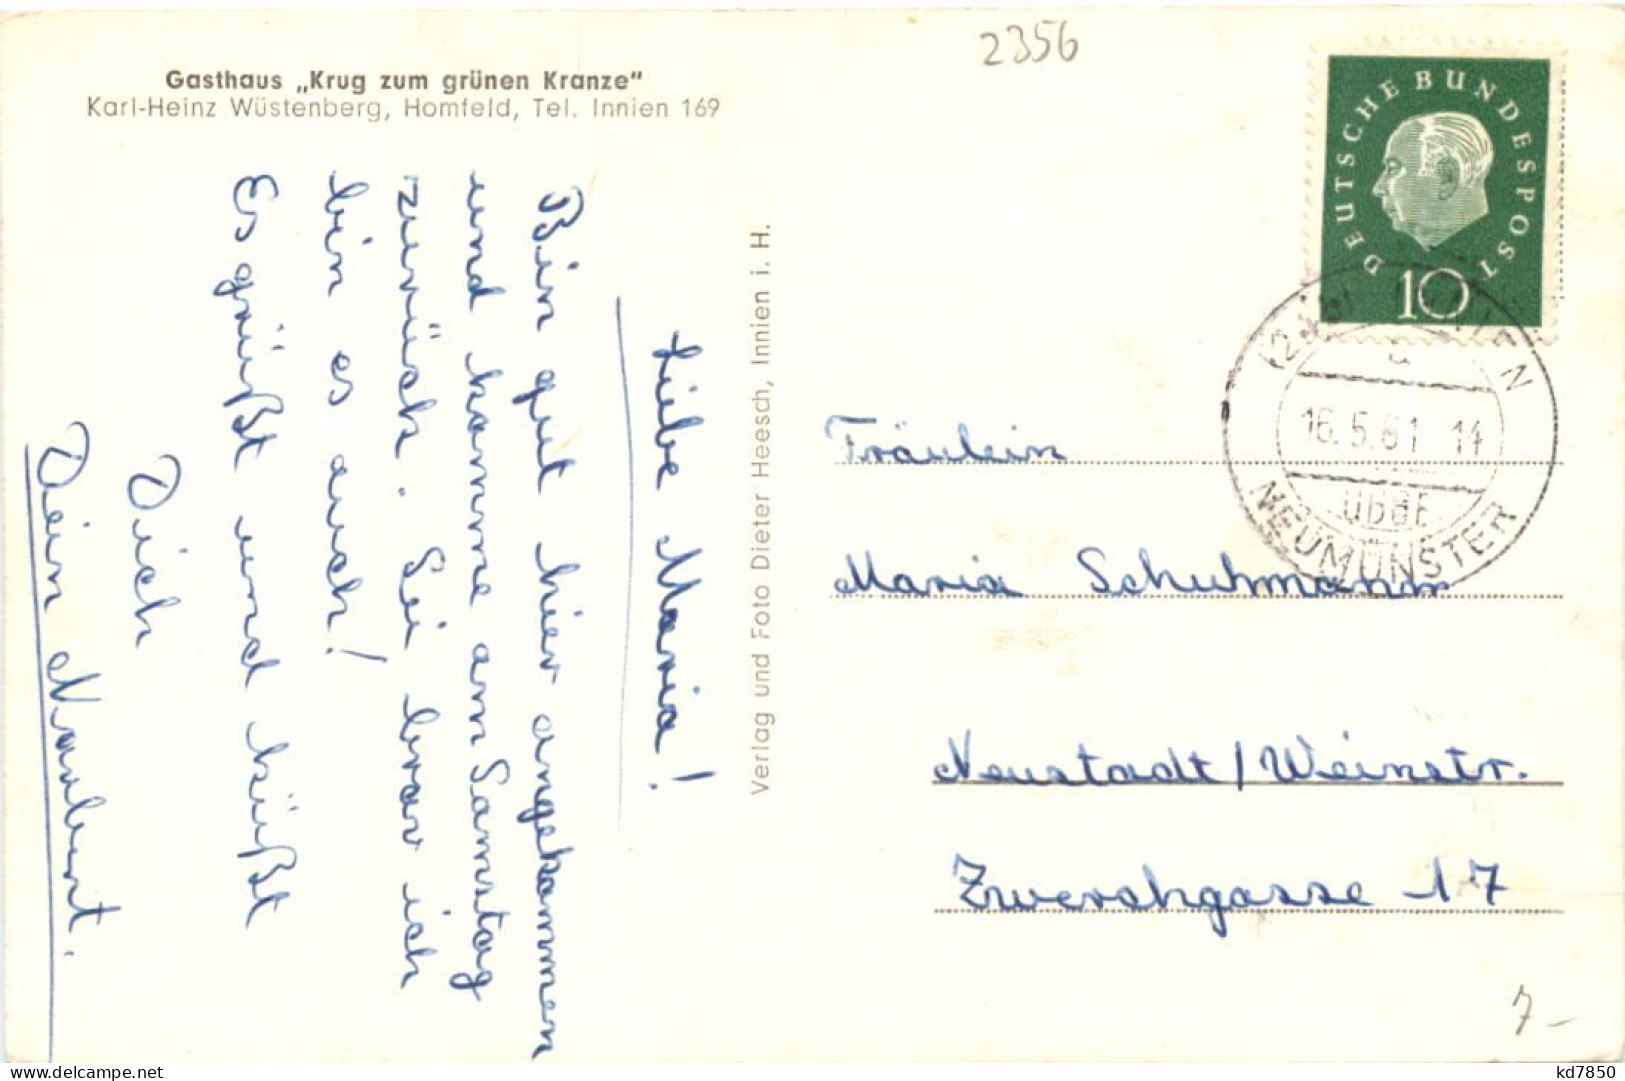 2356
Gasthaus „Krug zum grünen Kranze"
Karl-Heinz Wüstenberg, Homfeld, Tel. Innien 169
Liebe Maria!
Bin gut hier angekommen
und komme am Samstag
zurück. Sei brav ich
bin es auch!
Es grüßt und küßt
Dich
Dein Norbert.
Verlag und Foto Dieter Heesch, Innien i. H.
DEUTSCHE BUNDESPOST
10
INNIEN
a
16.5.61 14
über
NEUMÜNSTER
Fräulein
Maria Schuhmann
Neustadt/Weinstr.
Zwerchgasse 17
7-
delcampe.net
kd7850